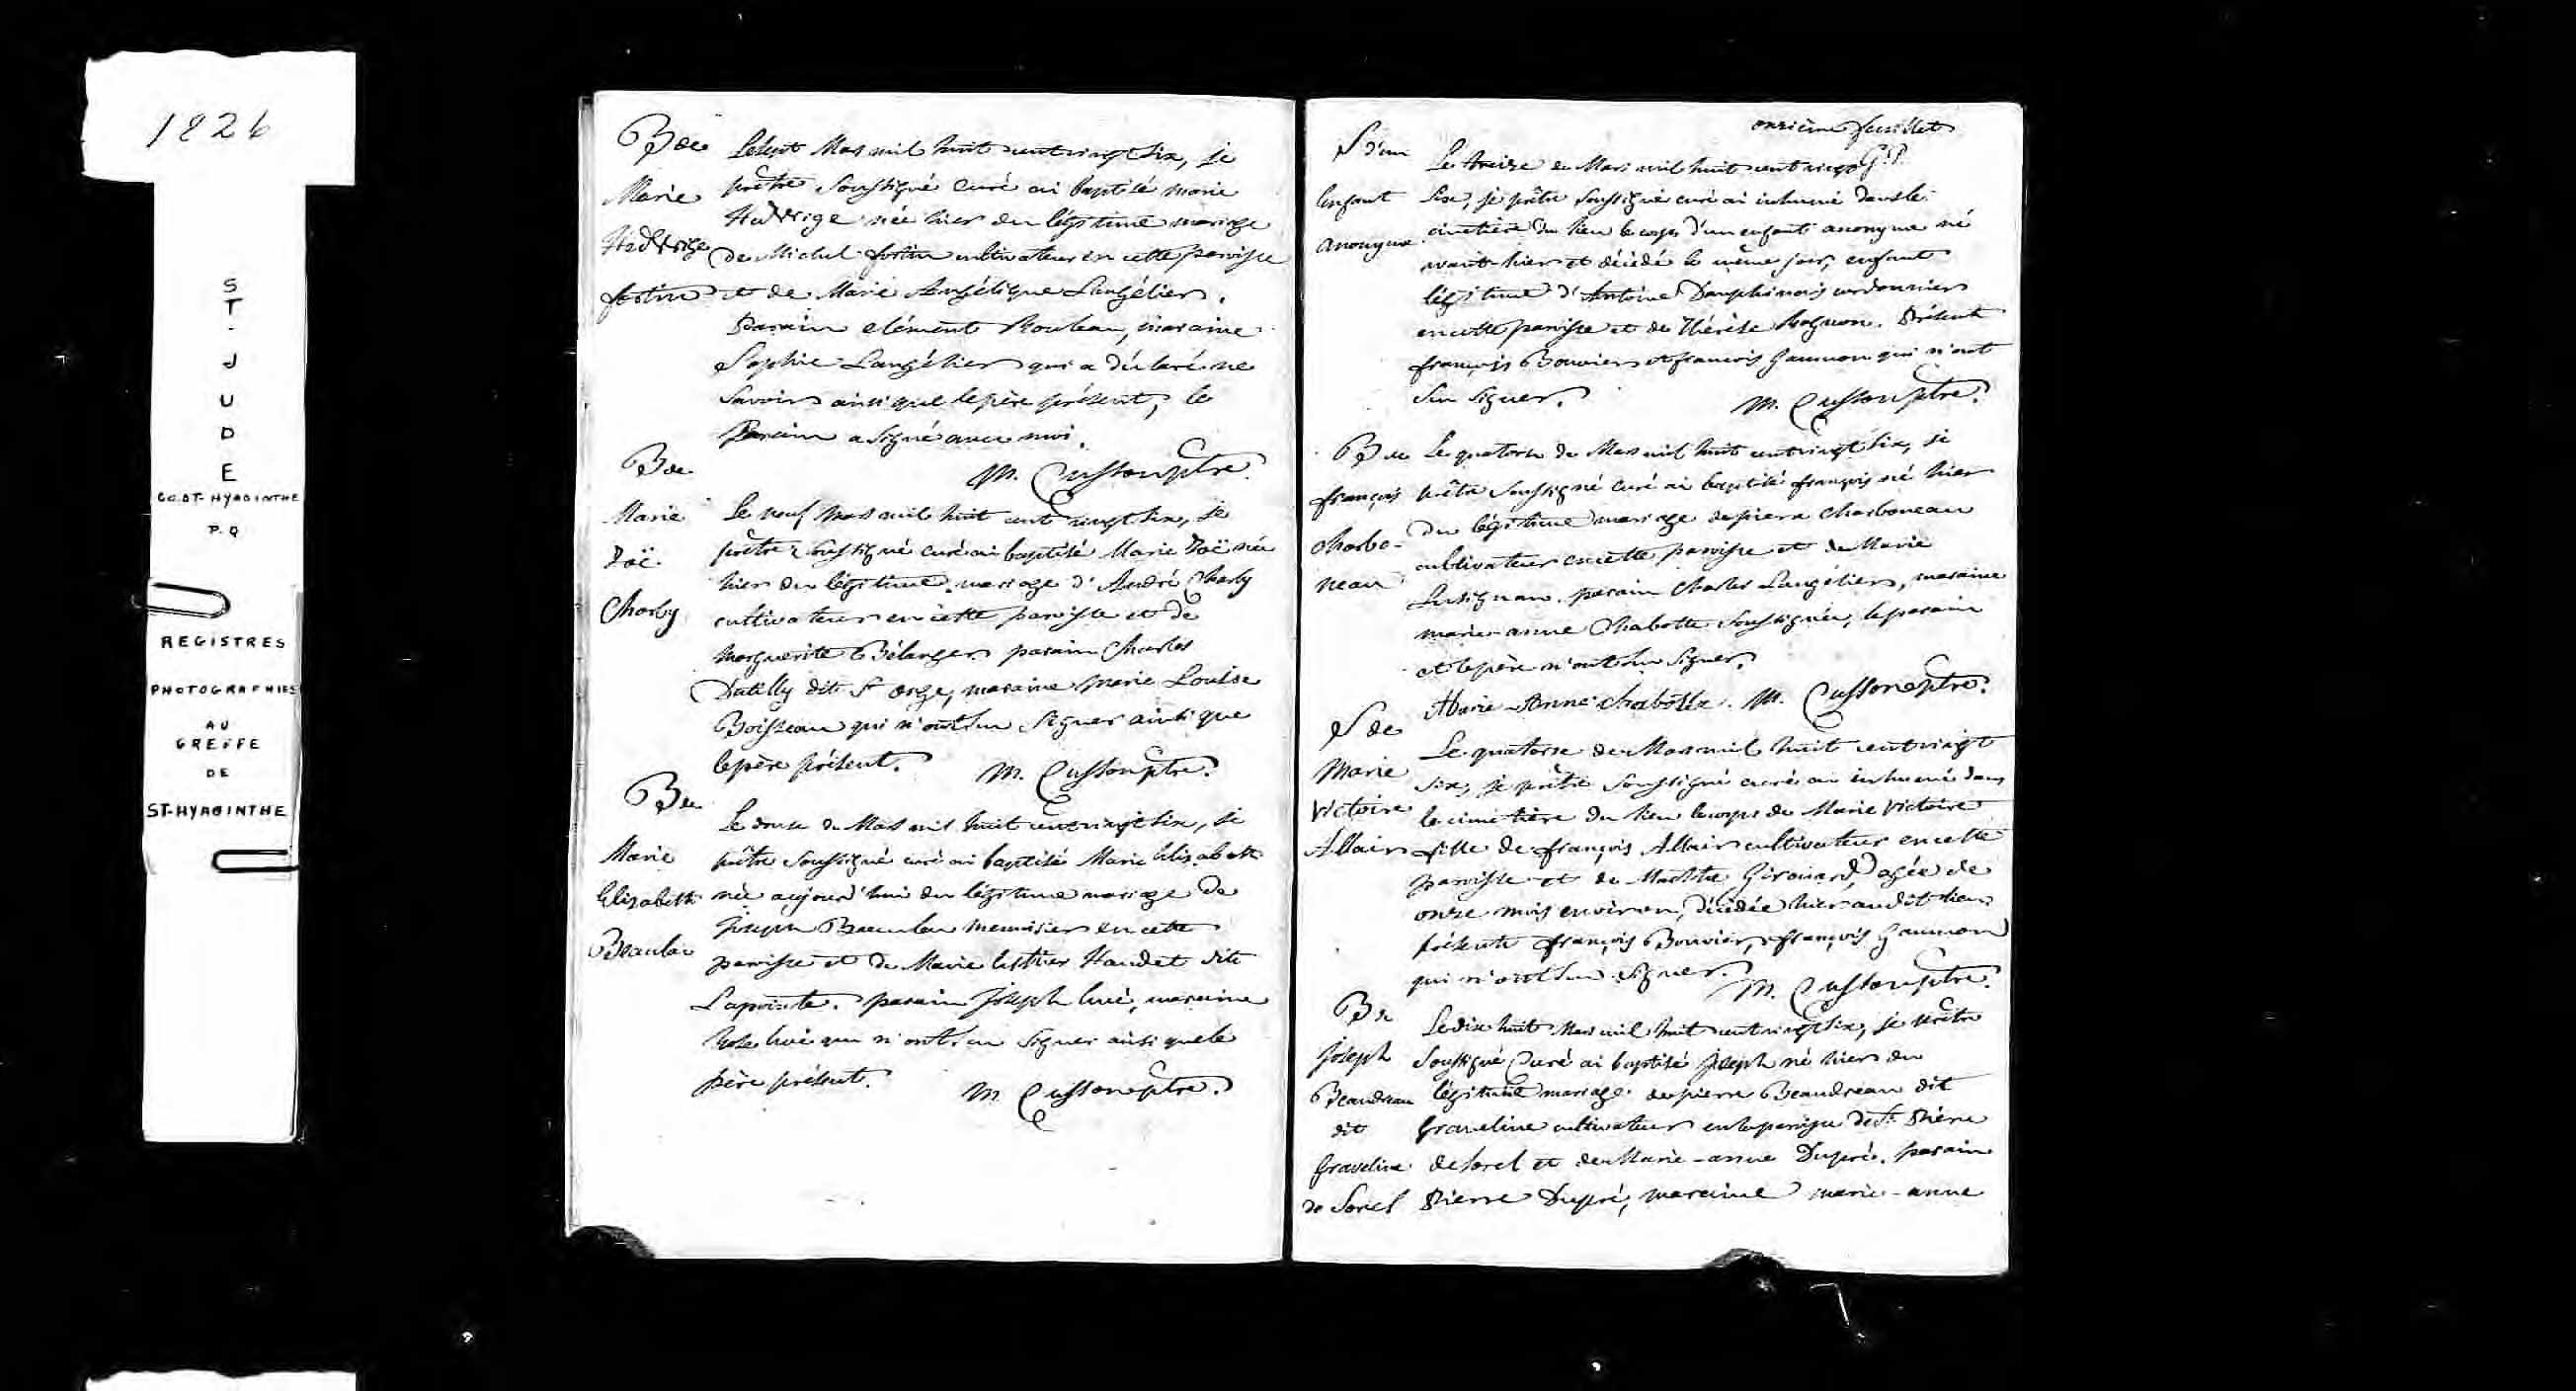 1826
ST. JUDE
CO. ST-HYACINTHE
P.Q
REGISTRES
PHOTOGRAPHIES
AU
GREFFE
DE
ST-HYACINTHE
B de
Marie
Hedvrige
fortin
Le sept Mars mil huit cent vingt six, je
prêtre soussigné curé ai baptisé marie
Hedvrige née hier du légitime mariage
de Michel fortin cultivateur en cette paroisse
et de Marie Angélique Langélier.
Parain clément Rouleau, maraine
Sophie Langélier qui a déclaré ne
savoir ainsi que le père présent, le
Parain a signé avec moi.
M. Cusson ptre.
B de
Marie
Zoë
Charly
Le neuf Mars mil huit cent vingt six, je
prêtre soussigné curé ai baptisé Marie Zoë née
hier du légitime mariage d'André Charly
cultivateur en cette paroisse et de
Marguerite Bélanger parain Charles
Datilly dit St orge, maraine marie Louise
Boisseau qui n'ont su signer ainsi que
le père présent. M. Cusson ptre.
B de
Marie
Elizabeth
Beaulac
Le douze de Mars mil huit cent vingt six, je
prêtre soussigné curé ai baptisé Marie Elizabeth
née aujourd'hui du légitime mariage de
Joseph menuisier en cette
paroisse et de Marie Esther Handet dite
Lapointe. parain Joseph hué, maraine
Rose hué qui n'ont su signer ainsi que le
père présent. M. Cusson ptre.
onzième feuillet
G.P.
S d'un
enfant
anonyme
Le treize de Mars mil huit cent vingt
six, je prêtre soussigné curé ai inhumé dans le
cimetière du lieu le corps d'un enfant anonyme né
avant-hier et décédé le même jour, enfant
légitime d'Antoine Dauphinais cordonnier
en cette paroisse et de Thérèse. Présent
françois Bouvier et francois Gaumon qui n'ont
su signer. M. Cusson ptre.
B de
françois
charbo-
neau
Le quatorze de Mars mil huit cent vingt six, je
prêtre soussigné curé ai baptisé françois né hier
du légitime mariage de pierre charboneau
cultivateur en cette paroisse et de Marie
Lusignan. parain Charles Langélier, maraine
marie-anne Chabotte soussignée, le parain
et le père n'ont su signer.
Marie-Anne chabotte. M. Cusson ptre.
S de
Marie
Victoire
Allair
Le quatorze de Mars mil huit cent vingt
six, je prêtre soussigné curé ai inhumé dans
le cimetière du lieu le corps de Marie Victoire
fille de françois Allair cultivateur en cette
paroisse et de Marthe Girouard, agée de
onze mois environ, décédée hier au dit lieu
présents françois Bouvier, françois Gaumon
qui n'ont su signer. M. Cusson ptre.
B de
Joseph
Beaudreau
dit
Graveline
de Sorel
Le dix huit Mars mil huit cent vingt six, je prêtre
soussigné curé ai baptisé Joseph né hier du
légitime mariage de pierre Beaudreau dit
Graveline cultivateur en la paroisse de St. Pierre
de Sorel et de Marie-anne Dupré. parain
Pierre Dupré, maraine marie-anne